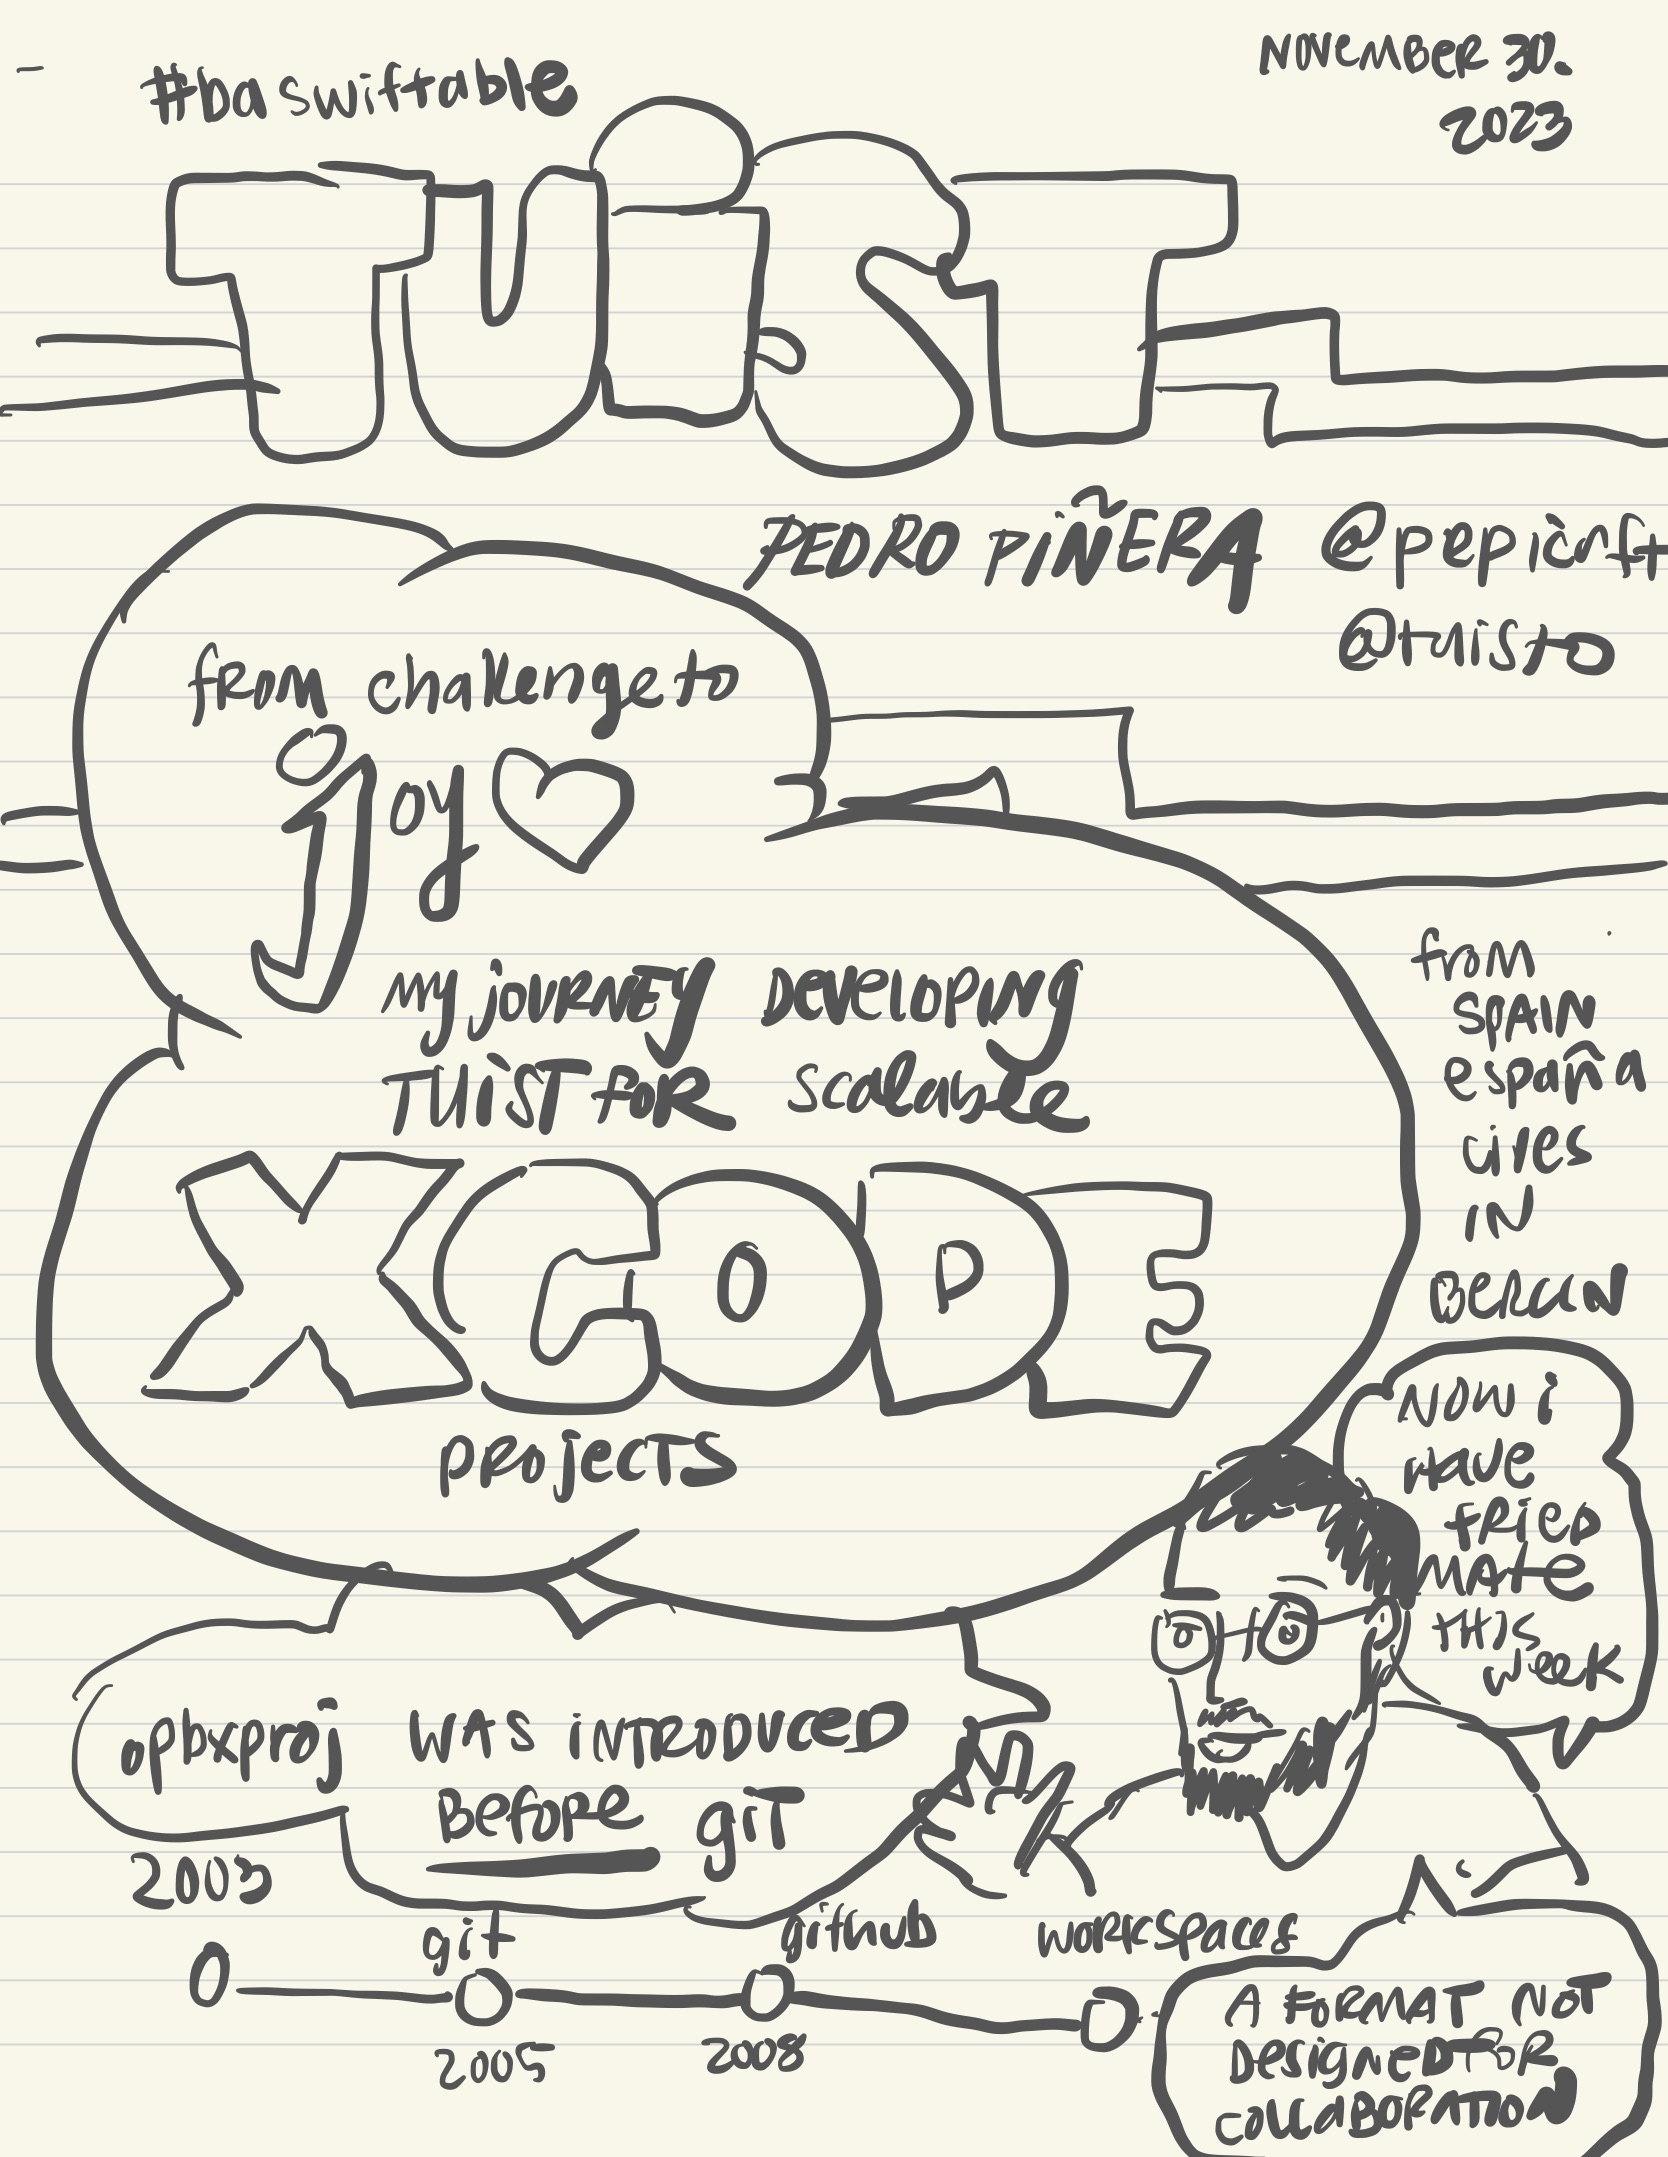 #baswiftable
NOVEMBER 30.
2023
TUiST
PEDRO PIÑERA @pepicrft
@tuisto
from challenge to
joy
my JOURNEY DEVELOPING
TUiST FOR scalable
XCODE
PROjECTS
from
SPAIN
españa
Lives
IN
BERLIN
NOW i
HAVE
TRIED
MATE
THIS
week
pbxproj WAS iNTRODUCED
BEFORE giT
2003
git
github
workspaces
2005
2008
A FORMAT NOT
DESiGNED FOR
COLLABORATION